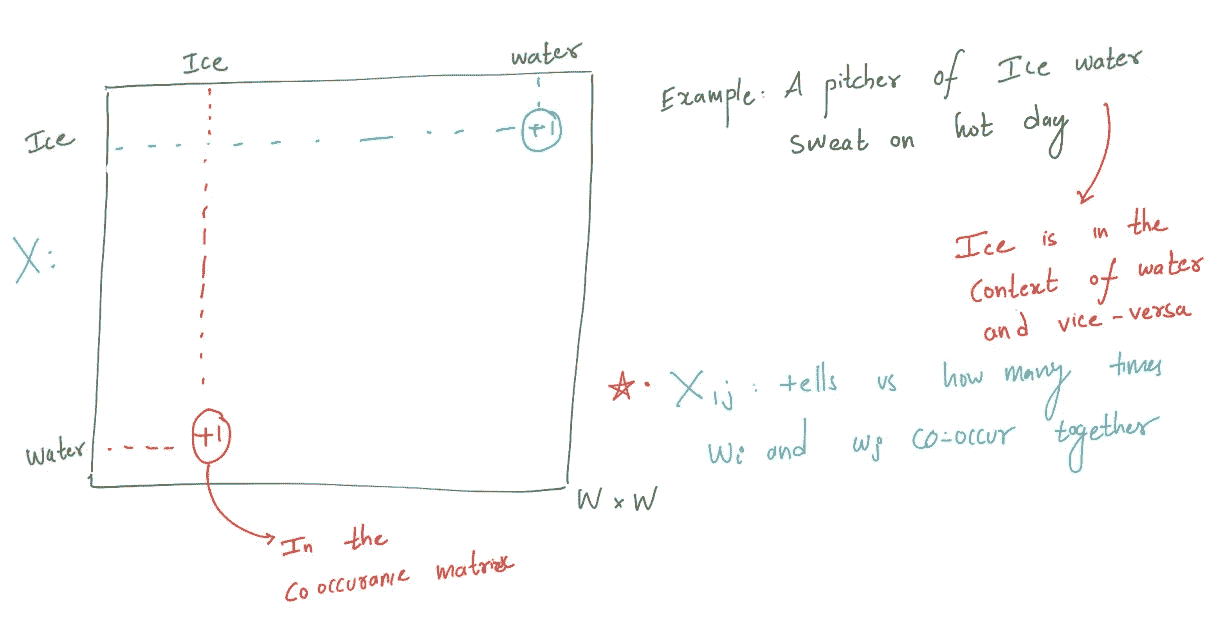 Ice
water
Ice
X:
water
+1
+1
W x W
In the
Cooccurance matrix
Example: A pitcher of Ice water
sweat on hot day
Ice is in the
Context of water
and vice-versa
☆. Xij : tells us how many times
Wi and wj co-occur together